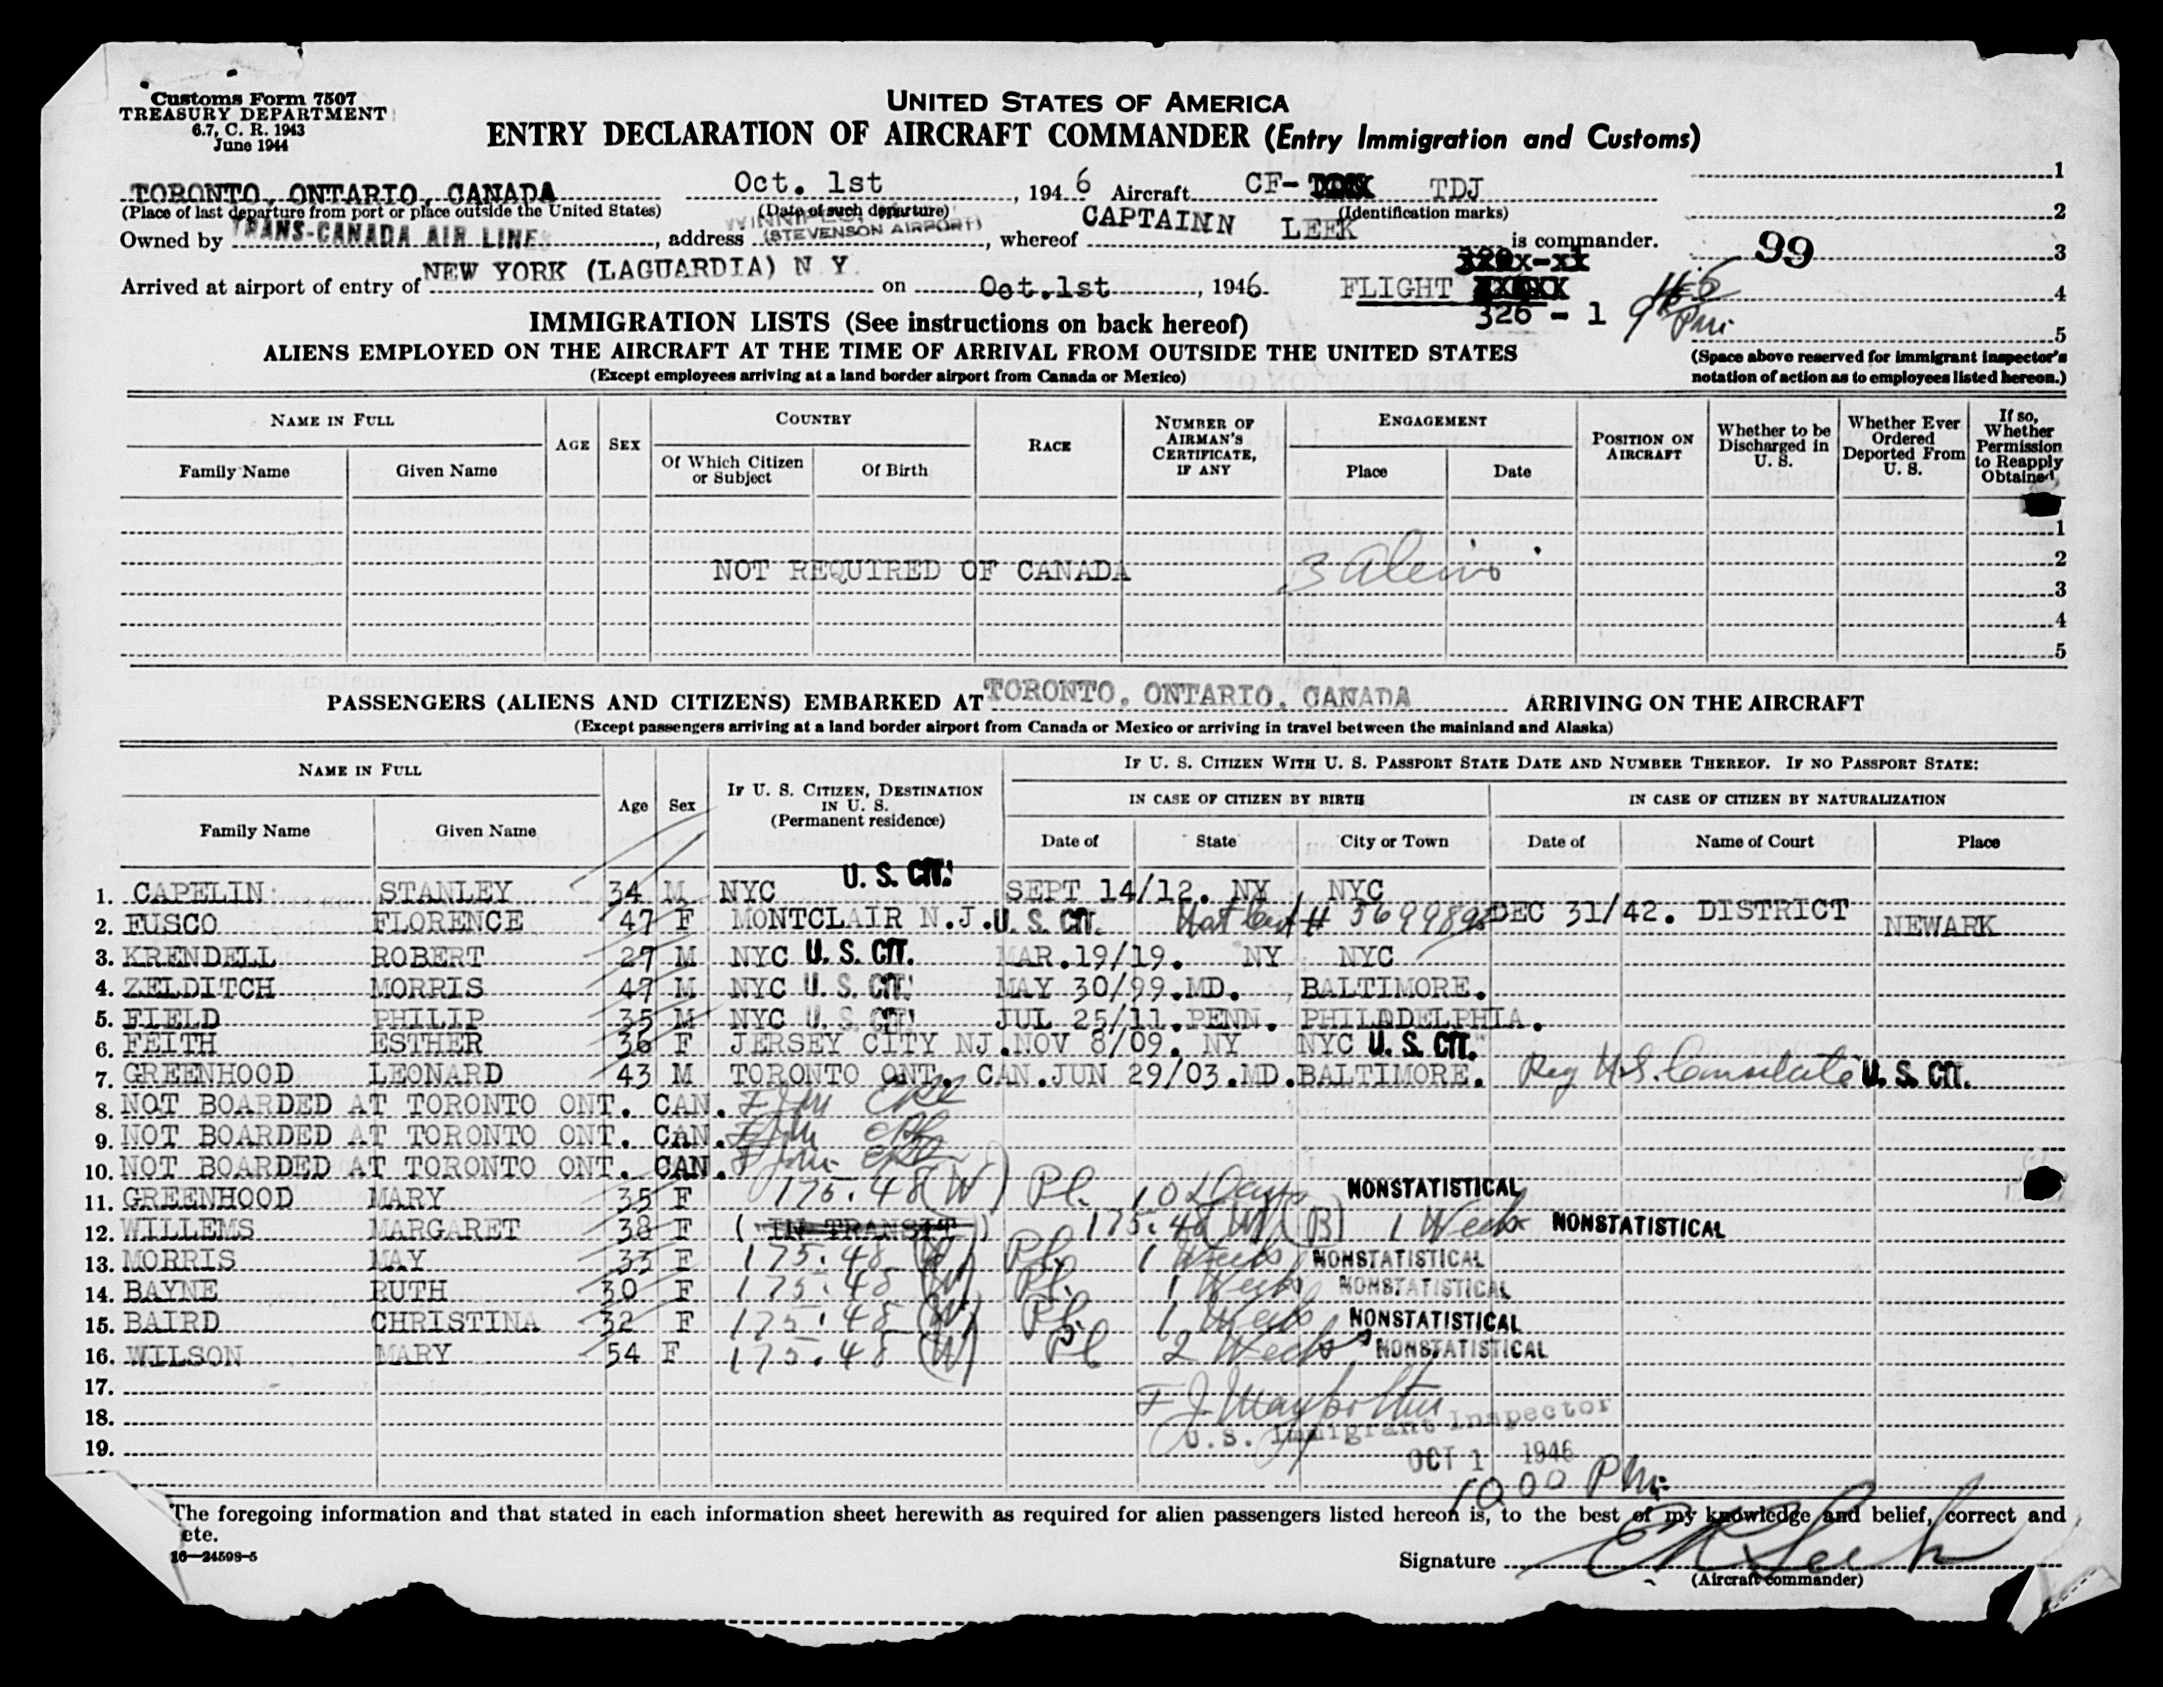 Customs Form 7507
TREASURY DEPARTMENT
6.7, C. R. 1943
June 1944
UNITED STATES OF AMERICA
ENTRY DECLARATION OF AIRCRAFT COMMANDER (Entry Immigration and Customs)
TORONTO, ONTARIO, CANADA Oct. 1st, 1946 Aircraft CF- TDJ 1
(Place of last departure from port or place outside the United States) (Date of such departure) (Identification marks) 2
Owned by TRANS-CANADA AIR LINES, address WINNIPEG (STEVENSON AIRPORT), whereof CAPTAINN LEEK is commander. 99 3
Arrived at airport of entry of NEW YORK (LAGUARDIA) N Y. on Oct.1st, 1946 FLIGHT 326 - 1 4
9 Pm. 5
IMMIGRATION LISTS (See instructions on back hereof)
ALIENS EMPLOYED ON THE AIRCRAFT AT THE TIME OF ARRIVAL FROM OUTSIDE THE UNITED STATES
(Except employees arriving at a land border airport from Canada or Mexico)
(Space above reserved for immigrant inspector's
notation of action as to employees listed hereon.)
NAME IN FULL AGE SEX COUNTRY RACE NUMBER OF AIRMAN'S CERTIFICATE, IF ANY ENGAGEMENT POSITION ON AIRCRAFT Whether to be Discharged in U. S. Whether Ever Ordered Deported From U. S. If so, Whether Permission to Reapply Obtained
Family Name Given Name Of Which Citizen or Subject Of Birth Place Date
1
2
NOT REQUIRED OF CANADA 3 aliens
3
4
5
PASSENGERS (ALIENS AND CITIZENS) EMBARKED AT TORONTO, ONTARIO, CANADA ARRIVING ON THE AIRCRAFT
(Except passengers arriving at a land border airport from Canada or Mexico or arriving in travel between the mainland and Alaska)
NAME IN FULL Age Sex IF U. S. CITIZEN, DESTINATION IN U. S. (Permanent residence) IF U. S. CITIZEN WITH U. S. PASSPORT STATE DATE AND NUMBER THEREOF. IF NO PASSPORT STATE:
IN CASE OF CITIZEN BY BIRTH IN CASE OF CITIZEN BY NATURALIZATION
Family Name Given Name Date of State City or Town Date of Name of Court Place
1. CAPELIN STANLEY 34 M NYC U. S. CIT. SEPT 14/12. NY NYC
2. FUSCO FLORENCE 47 F MONTCLAIR N.J. U. S. CIT. Nat Cert # 5699896 DEC 31/42. DISTRICT NEWARK
3. KRENDELL ROBERT 27 M NYC U. S. CIT. MAR.19/19. NY NYC
4. ZELDITCH MORRIS 47 M NYC U. S. CIT. MAY 30/99.MD. BALTIMORE.
5. FIELD PHILIP 35 M NYC U. S. CIT. JUL 25/11.PENN. PHILADELPHIA.
6. FEITH ESTHER 36 F JERSEY CITY NJ.NOV 8/09. NY NYC U. S. CIT.
7. GREENHOOD LEONARD 43 M TORONTO ONT. CAN.JUN 29/03.MD.BALTIMORE. Reg U.S. Consulate U. S. CIT.
8. NOT BOARDED AT TORONTO ONT. CAN.
9. NOT BOARDED AT TORONTO ONT. CAN.
10. NOT BOARDED AT TORONTO ONT. CAN.
11. GREENHOOD MARY 35 F 175.48 (W) Pl. 10 Days NONSTATISTICAL
12. WILLEMS MARGARET 38 F (IN TRANSIT) 175.48 (W) (B) 1 Week NONSTATISTICAL
13. MORRIS MAY 33 F 175.48 (W) Pl. 1 Week NONSTATISTICAL
14. BAYNE RUTH 30 F 175.48 (W) Pl. 1 Week NONSTATISTICAL
15. BAIRD CHRISTINA 32 F 175.48 (W) Pl. 1 Week NONSTATISTICAL
16. WILSON MARY 54 F 175.48 (W) Pl 2 Weeks NONSTATISTICAL
17.
18. U.S. Immigrant Inspector
19. OCT 1 1946
10 00 PM.
The foregoing information and that stated in each information sheet herewith as required for alien passengers listed hereon is, to the best of my knowledge and belief, correct and
ete.
16—24598-5
Signature E R Leek
(Aircraft commander)